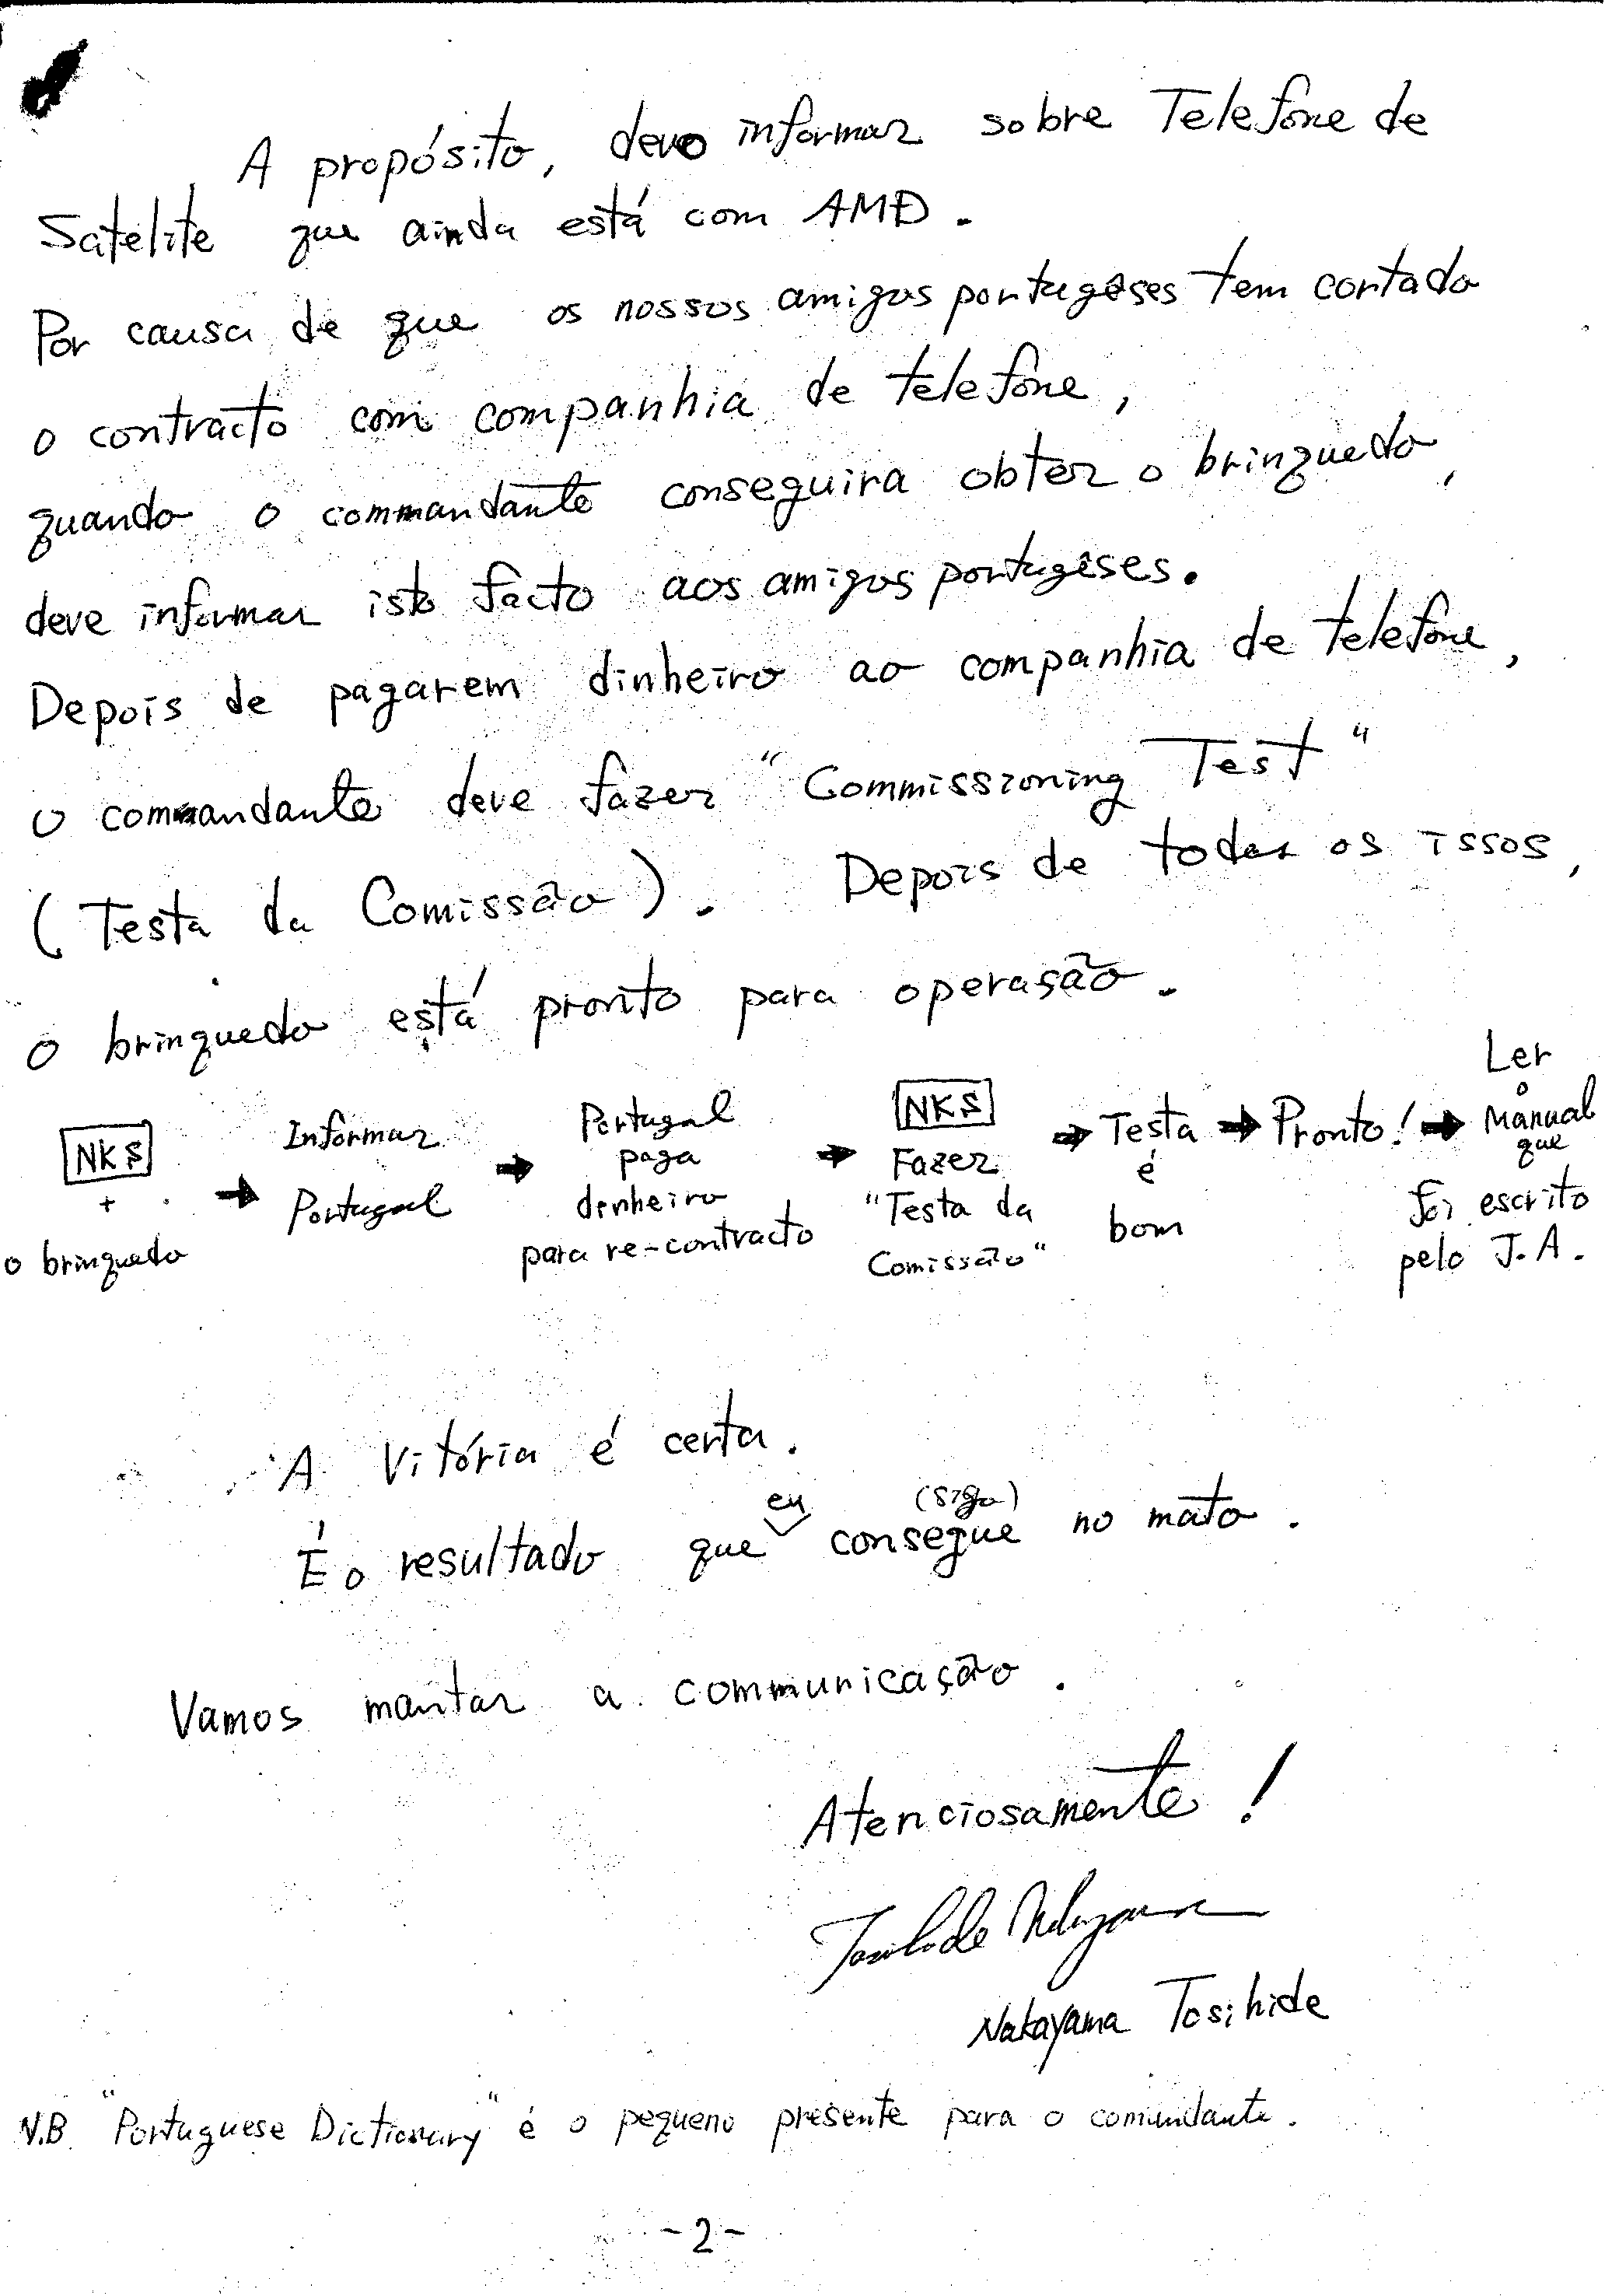 A propósito, devo informar sobre Telefone de
Satelite que ainda está com AMD.
Por causa de que os nossos amigos portugêses tem cortado
o contracto com companhia de telefone,
quando o commandante conseguira obter o brinquedo,
deve informar isto facto aos amigos portugêses.
Depois de pagarem dinheiro ao companhia de telefone,
o commandante deve fazer "Commissioning Test"
(Testa da Comissão). Depois de todos os issos,
o brinquedo está pronto para operasão.
NKS
+
o brinquedo
→ Informar
Portugal
→ Portugal
paga
dinheiro
para re-contracto
→ NKS
Fazer
"Testa da
Comissão"
→ Testa
é
bom
→ Pronto! →
Ler
o
Manual
que
foi escrito
pelo J.A.
A Vitória é certa.
É o resultado que eu consegue (sigo) no mato.
Vamos mantar a communicação.
Atenciosamente!
Nakayama Tosihide
N.B "Portuguese Dictionary" é o pequeno presente para o comandante.
-2-